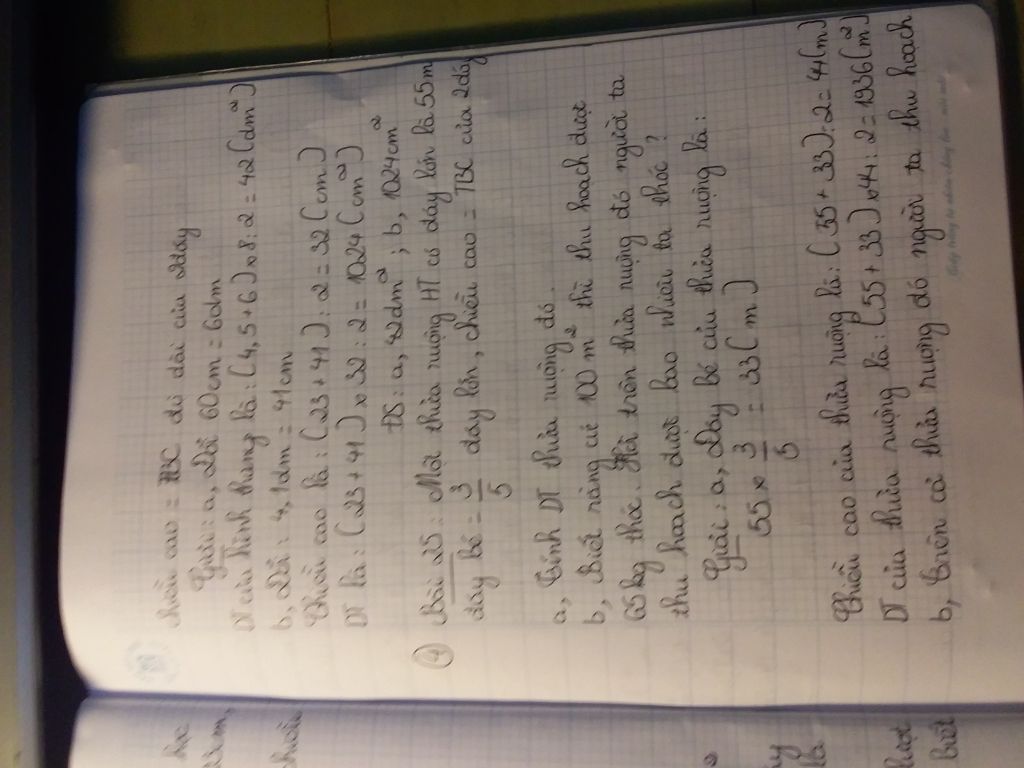 chiều cao = TBC độ dài của 2đáy
Giải: a, Đổi 60cm = 6dm
DT của hình thang là: (4,5+6) x 8 : 2 = 42(dm²)
b, Đổi: 4,1dm = 41cm
Chiều cao là: (23+41) : 2 = 32(cm)
DT là: (23+41) x 32 : 2 = 1024(cm²)
ĐS: a, 42dm²; b, 1024cm²
Bài 25: Một thửa ruộng HT có đáy lớn là 55m
đáy bé = 3/5 đáy lớn, chiều cao = TBC của 2đáy
a, Tính DT thửa ruộng đó.
b, Biết rằng cứ 100m² thì thu hoạch được
65kg thóc. Hỏi trên thửa ruộng đó người ta
thu hoạch được bao nhiêu tạ thóc?
Giải: a, Đáy bé của thửa ruộng là:
55 x 3/5 = 33(m)
Chiều cao của thửa ruộng là: (55+33):2=44(m)
DT của thửa ruộng là: (55+33)x44:2=1936(m²)
b, Trên cả thửa ruộng đó người ta thu hoạch
học
chiều
là
được
biết